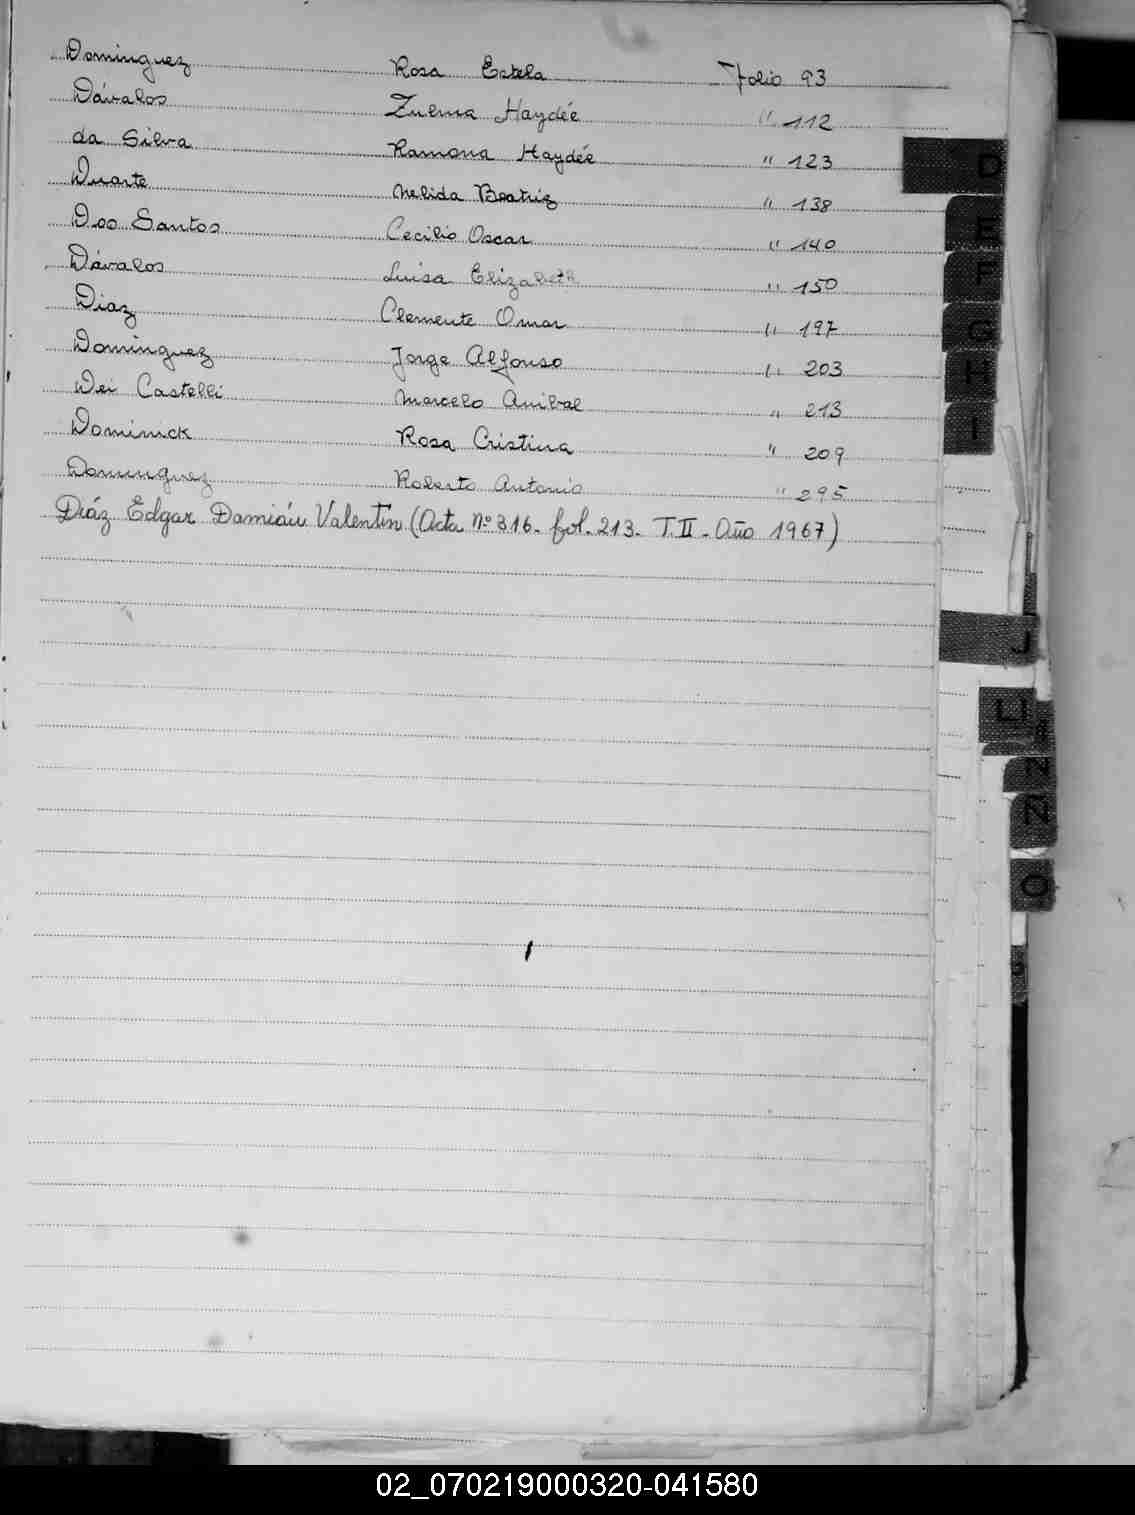 Dominguez Rosa Estela Folio 93
Dávalos Zulma Haydée " 112
da Silva Ramona Haydée " 123
Duarte Nelida Beatriz " 138
Dos Santos Cecilio Oscar " 140
Dávalos Luisa Elizabeth " 150
Diaz Clemente Omar " 197
Dominguez Jorge Alfonso " 203
Dei Castelli Marcelo Anibal " 213
Dominick Rosa Cristina " 209
Dominguez Roberto Antonio " 295
Diáz Edgar Damián Valentín (Acta nº 316. fol. 213. T. II - Año 1967)
D
E
F
G
H
I
J
LL
N
Ñ
O
02_070219000320-041580